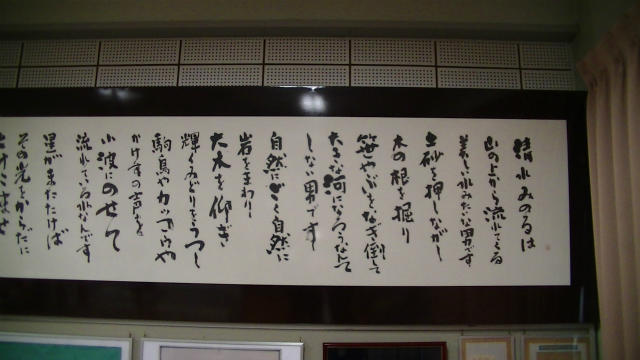 清水みのるは
山の上から流れてくる
美しい水みたいな男です
土砂を押しながし
木の根を掘り
笹やぶをなぎ倒して
大きな河になろうなんて
しない男です
自然にごく自然に
岩をまわし
大木を仰ぎ
輝くみどりをうつし
駒鳥やカッコウや
かけすの声を
小波にのせて
流れている水なんです
星がまたたけば
その光をからだに